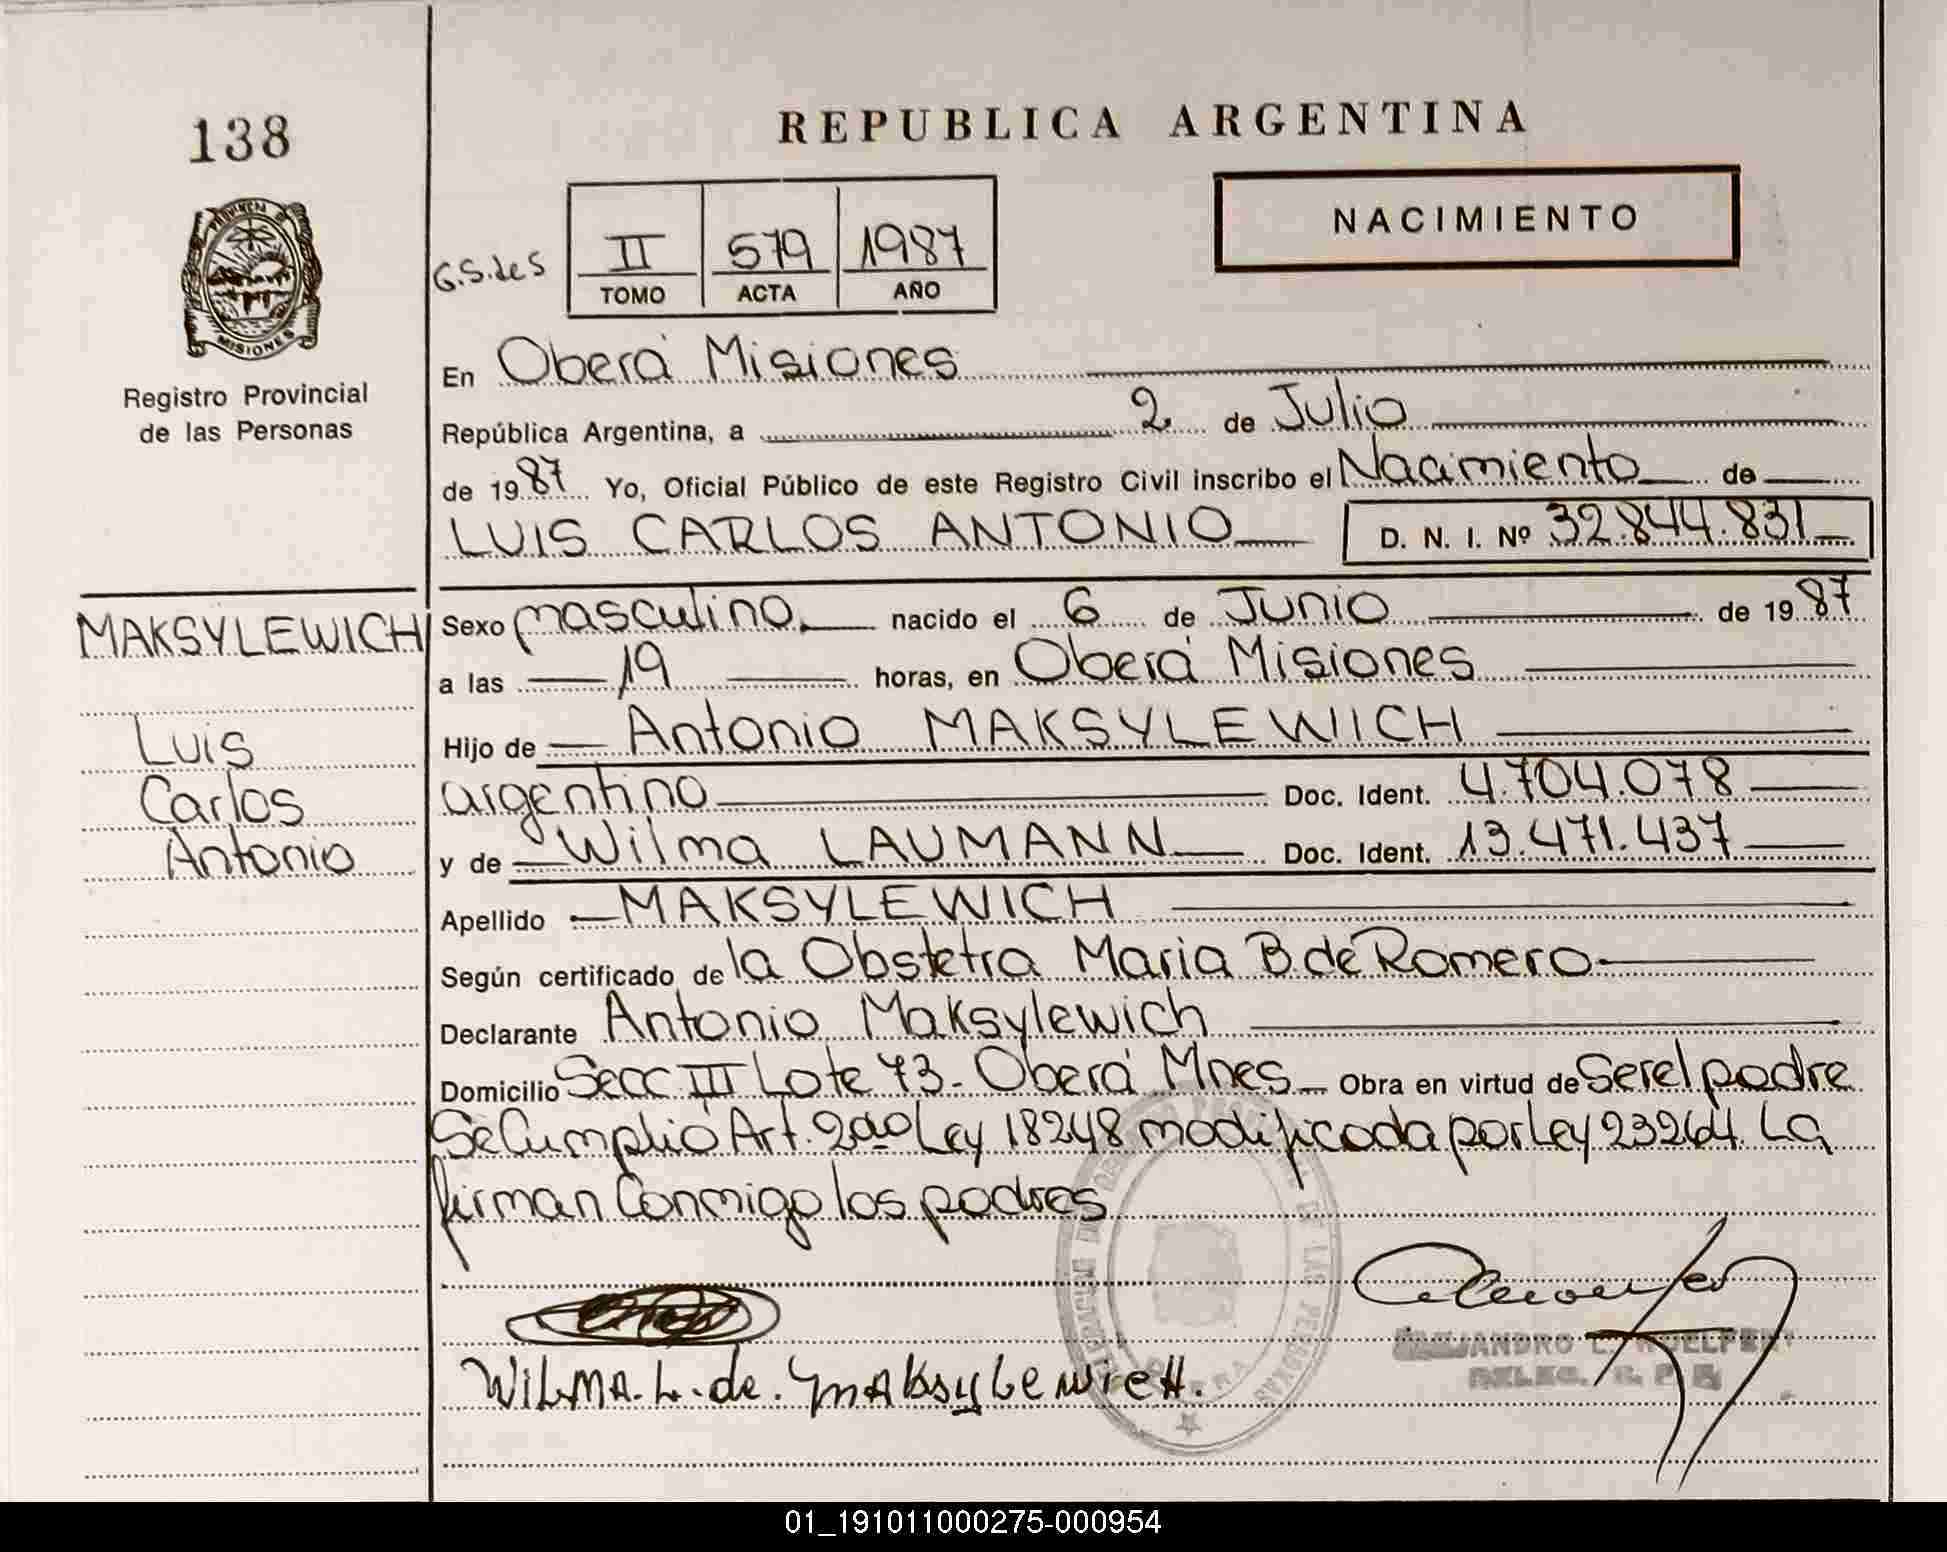 138
REPUBLICA ARGENTINA
PROVINCIA D
MISIONES
Registro Provincial
de las Personas
NACIMIENTO
G.S.des
II 579 1987
TOMO ACTA AÑO
En Oberá Misiones
República Argentina, a 2 de Julio
de 1987 Yo, Oficial Público de este Registro Civil inscribo el Nacimiento de
LUIS CARLOS ANTONIO D. N. I. Nº 32.844.831
MAKSYLEWICH
Luis
Carlos
Antonio
Sexo masculino nacido el 6 de Junio de 1987
a las 19 horas, en Oberá Misiones
Hijo de Antonio MAKSYLEWICH
argentino Doc. Ident. 4.704.078
y de Wilma LAUMANN Doc. Ident. 13.471.437
Apellido MAKSYLEWICH
Según certificado de la Obstetra Maria B de Romero
Declarante Antonio Maksylewich
Domicilio Secc III Lote 73- Oberá Mnes Obra en virtud de Ser el padre
Se Cumplió Art. 2do Ley 18248 modificada por Ley 23264. La
firman Conmigo los padres
WILMA. L. de. MAksyLewicH.
DE LAS PERSONAS
01_191011000275-000954